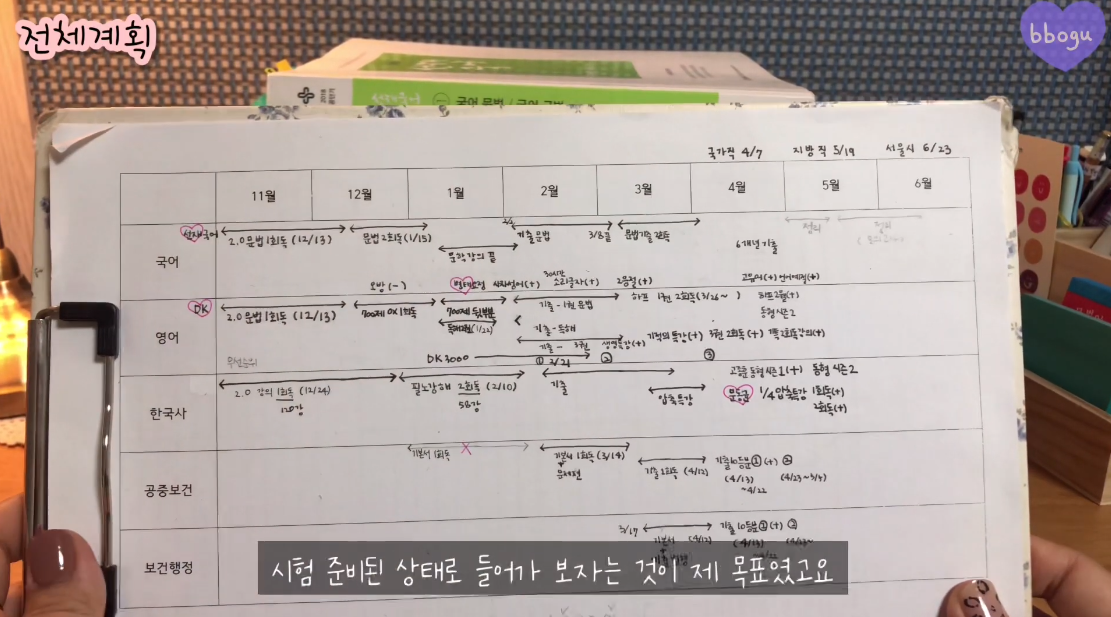 전체계획
bbogu
2018
국어 문법
국가직 4/7 지방직 5/19 서울시 6/23
11월 12월 1월 2월 3월 4월 5월 6월
국어
선재국어
2.0 문법 1회독 (12/13)
문법 2회독 (1/15)
기출문법
3/8끝
문법기출 2회독
정리
문학강의 끝
6개년 기출
오방 (-)
사자성어(+)
30시간
소리글자(+)
영어
DK
2.0 문법 1회독 (12/13)
700제 OX 1회독
700제 뒷부분
(1/22)
기출 - 1권 문법
하프 1권 2회독 (3/26~ )
동형 시즌2
기출 - 독해
기출 - 3권
생영특강(+)
기적의 특강(+)
3권 2회독(+)
DK 3000
① 2/21 ② ③
한국사
2.0 강의 1회독 (12/24)
120강
필노강해 2회독 (2/10)
58강
기출
압축특강
고종훈 동형 시즌1(+) 동형 시즌2
문동균
1/4 압축특강 1회독(+)
2회독(+)
공중보건
기본서 1회독
기본서 1회독 (3/14)
+
문제편
기출 2회독 (4/12)
기출 10등분 ① (+) ②
(4/13)
~4/22
보건행정
3/17
기본서
(4/12)
기출 10등분 ① (+) ②
시험 준비된 상태로 들어가 보자는 것이 제 목표였고요